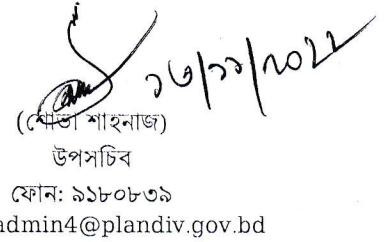 ১৩/১১/২০২২
(শোভা শাহনাজ)
উপসচিব
ফোন: ৯১৮০৮৩৯
admin4@plandiv.gov.bd